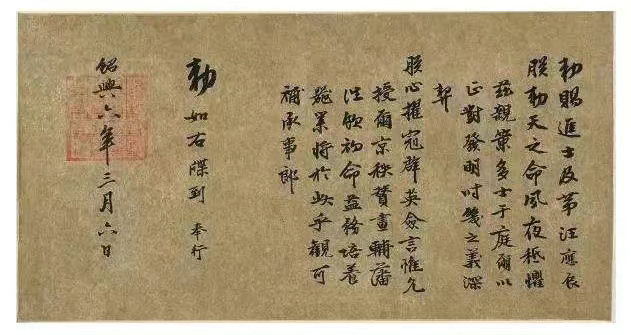 勅賜進士及第汪應辰
朕勅天之命夙夜祗懼
茲親策多士于庭爾以
正對發明时幾之義深
契
朕心擢冠群英僉言惟允
授爾京秩贊畫輔藩
往欽初命益務培養
施業將於此乎觀可
補承事郎
勅 如右牒到 奉行
紹興六年三月六日